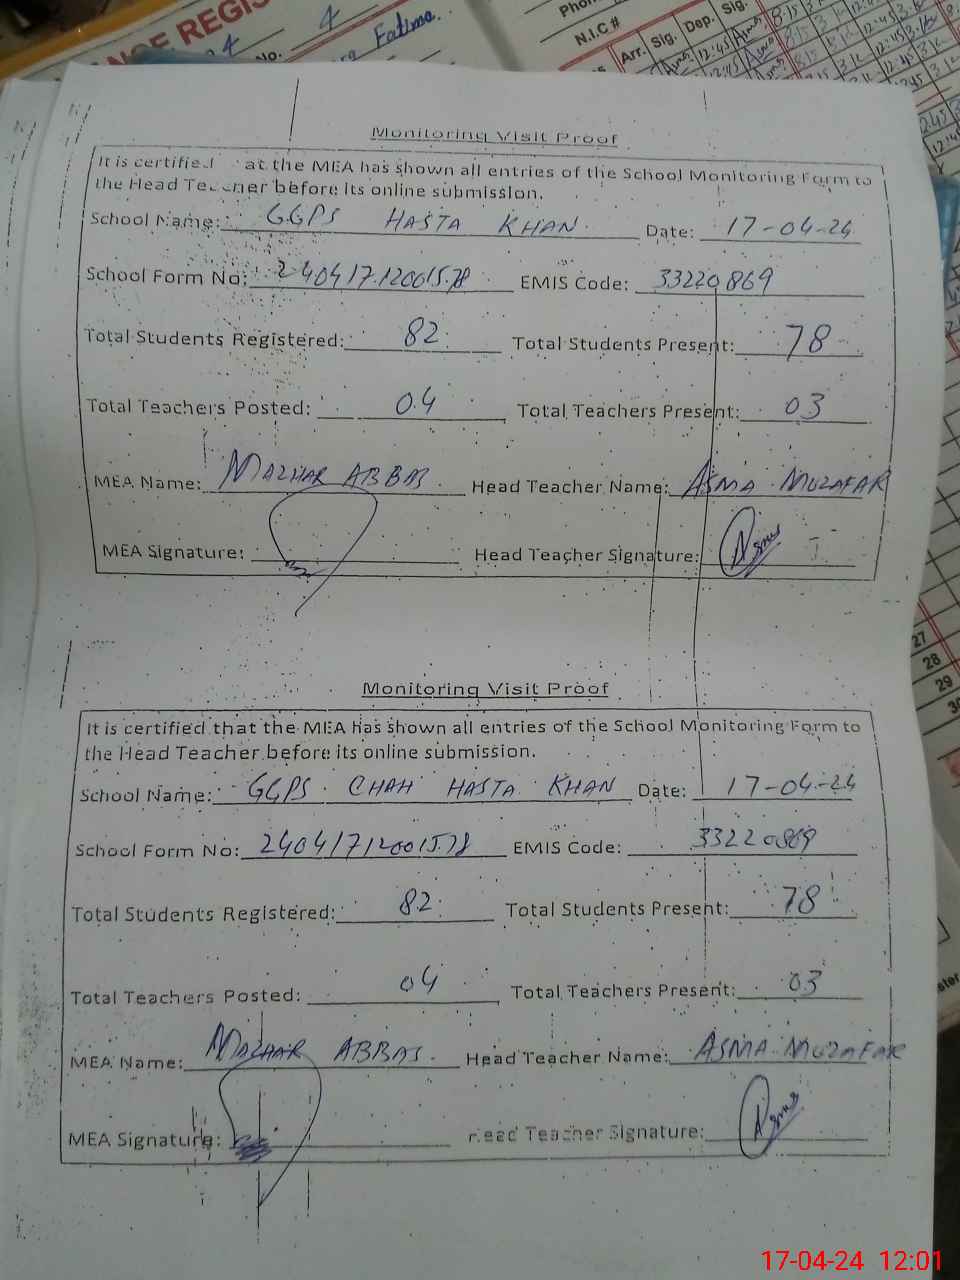 NCE REGIS
4
No. 4
Fatima.
Phon
N.I.C #
Arr. Sig. Dep. Sig.
Monitoring Visit Proof
It is certified at the MEA has shown all entries of the School Monitoring Form to
the Head Teacher before its online submission.
School Name: GGPS HASTA KHAN Date: 17-04-24
School Form No: 24041712001578 EMIS Code: 33220869
Total Students Registered: 82 Total Students Present: 78
Total Teachers Posted: 04 Total Teachers Present: 03
MEA Name: MAZHAR ABBAS Head Teacher Name: ASMA MUZAFAR
MEA Signature: Head Teacher Signature: Asma
Monitoring Visit Proof
It is certified that the MEA has shown all entries of the School Monitoring Form to
the Head Teacher before its online submission.
School Name: GGPS CHAH HASTA KHAN Date: 17-04-24
School Form No: 24041712001578 EMIS Code: 33220869
Total Students Registered: 82 Total Students Present: 78
Total Teachers Posted: 04 Total Teachers Present: 03
MEA Name: MAZHAR ABBAS. Head Teacher Name: ASMA MUZAFAR
MEA Signature: Head Teacher Signature: Asma
27
28
29
30
17-04-24 12:01